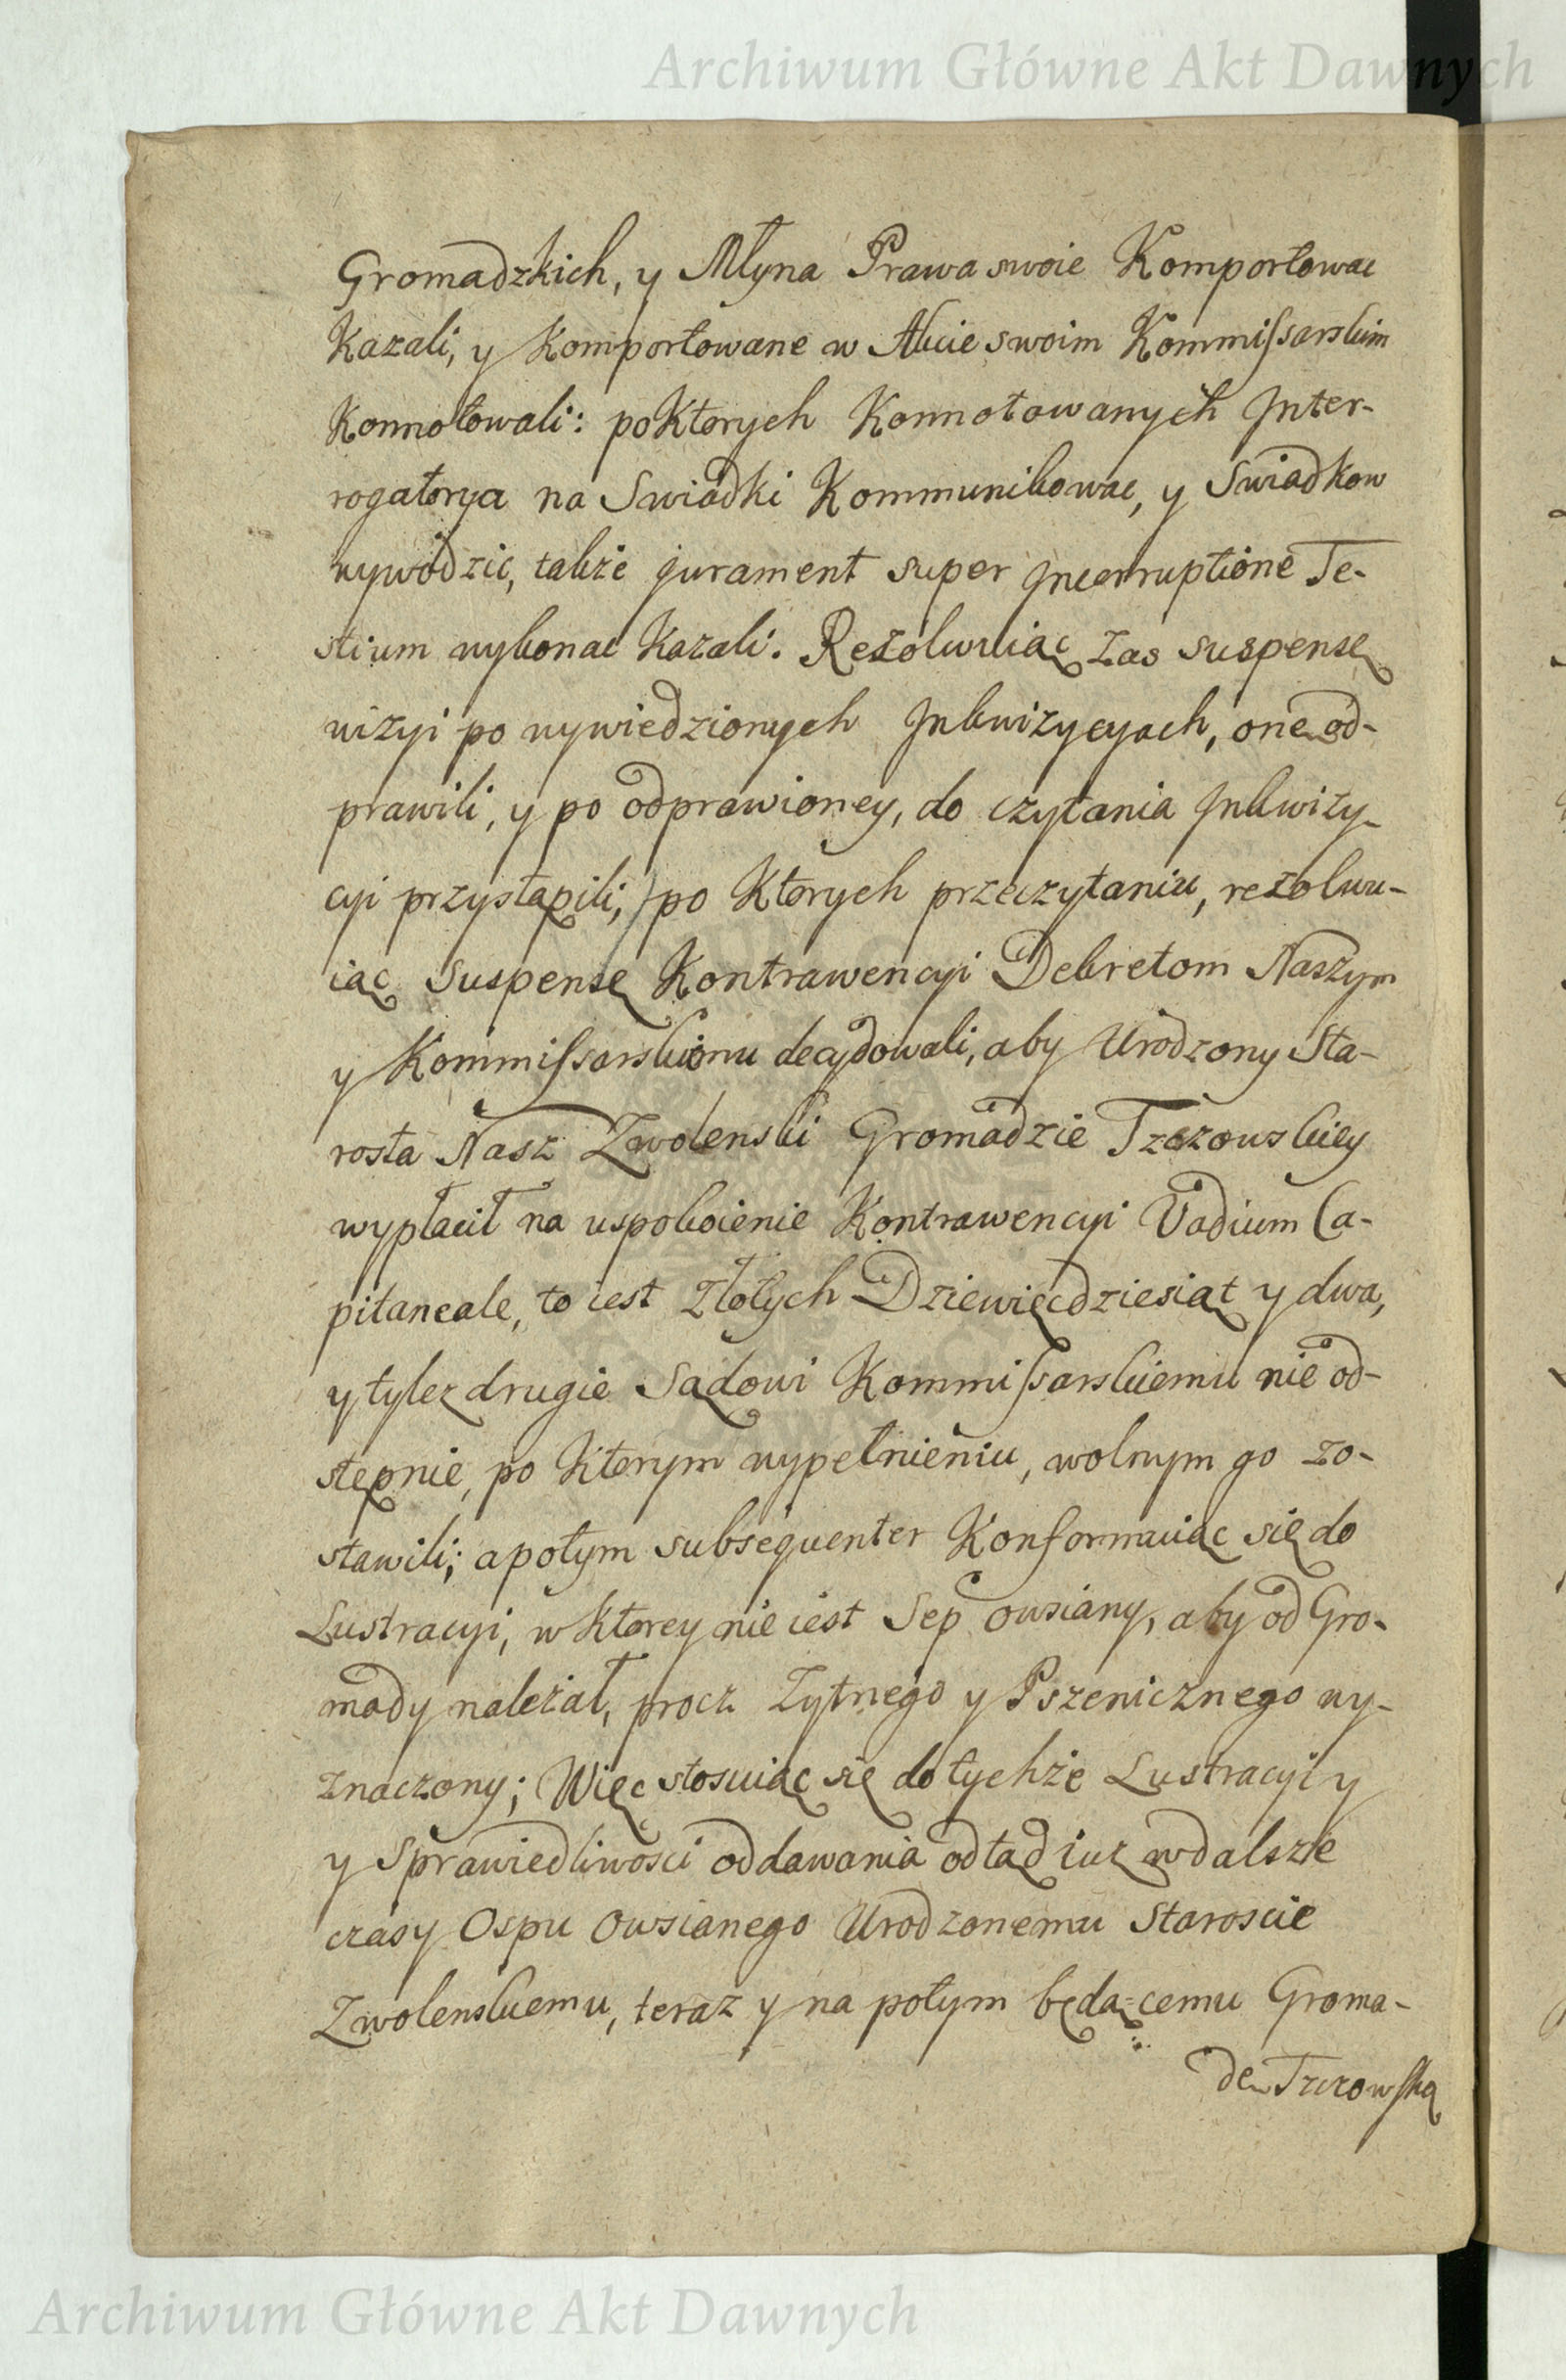 Archiwum Główne Akt Dawnych
Gromadzkich, y Młyna Prawa swoie Komportowac
Kazali, y Komportowane w Akcie swoim Kommissarskim
Konnotowali: po Ktorych Konnotowanych Inter-
rogatorya na Swiadki Kommunikowac, y Swiadkow
wywodzic, także jurament super Incorruptione Te-
stium wykonac Kazali. Rezolwuiąc zas suspensę
wizyi po wywiedzionych Inkwizycyach, onę od-
prawili, y po odprawioney, do czytania Inkwizy-
cyi przystąpili; po Ktorych przeczytaniu, rezolwu-
iąc suspensę Kontrawencyi Dekretom Naszym
y Kommissarskiemu decydowali, aby Urodzony Sta-
rosta Nasz Zwolenski Gromadzie Tczowskiey
wypłacił na uspokoienie Kontrawencyi Vadium Ca-
pitaneale, to iest Złotych Dziewięcdziesiąt y dwa,
y tylez drugie Sądowi Kommissarskiemu nie od-
stępnie, po Ktorym wypełnieniu, wolnym go zo-
stawili; a potym subsequenter Konformuiąc się do
Lustracyi, w Ktorey nie iest Sep owsiany, aby od Gro-
mady należał, procz Zytnego y Pszenicznego wy-
znaczony; Więc stosuiąc się do tychże Lustracyi y
y Sprawiedliwosci oddawania odtąd iuz w dalsze
czasy Ospu Owsianego Urodzonemu Staroscie
Zwolenskiemu, teraz y na potym będą-cemu Groma-
dę Tczowską
Archiwum Główne Akt Dawnych